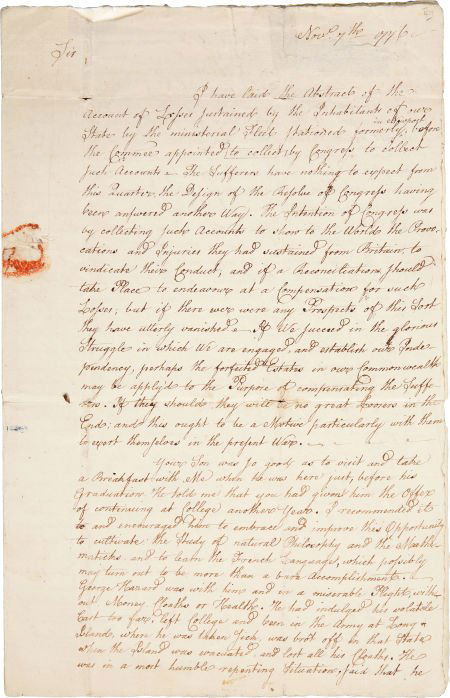 Novr 7th 1776
Sir
I have laid the Abstract of the
Account of Losses sustained by the Inhabitants of our
State by the ministerial Fleet stationed formerly in Newport before
the Commee appointed to collect, by Congress to collect
such Accounts. The Sufferers have nothing to expect from
this Quarter the Design of the Resolve of Congress having
been answered another Way. The Intention of Congress was
by collecting such Accounts to show to the World the Provo-
cations and Injuries they had sustained from Britain, to
vindicate their Conduct, and if a Reconciliation should
take Place to endeavour at a Compensation for such
Losses; but if there ever were any Prospects of this Sort
they have utterly vanished. If We succeed in the glorious
Struggle in which We are engaged, and establish our Inde-
pendency, perhaps the forfeited Estates in our Commonwealth
may be apply'd to the Purpose of compensating the Suffe-
rers. If they should they will be no great Loosers in the
End; and this ought to be a Motive particularly with them
to exert themselves in the present War.
Your Son was so good as to visit and take
a Breakfast with Me when he was here just before his
Graduation. He told me that you had given him the Offer
of continuing at College another Year. I recommended it
to and encouraged him to embrace and improve this Opportunity
to cultivate the Study of natural Philosophy and the Mathe-
maticks and to learn the French Language, which possibly
may turn out to be more than a bare Accomplishment.
George Hazard was with him and in a miserable Plight, with-
out Money, Cloaths or Health. He had indulged his volatile
Cast too far, left College and been in the Army at Long
Island, when he was taken Sick, was brot off in that State
when the Island was evacuated and lost all his Cloaths. He
was in a most humble repenting Situation, said that he